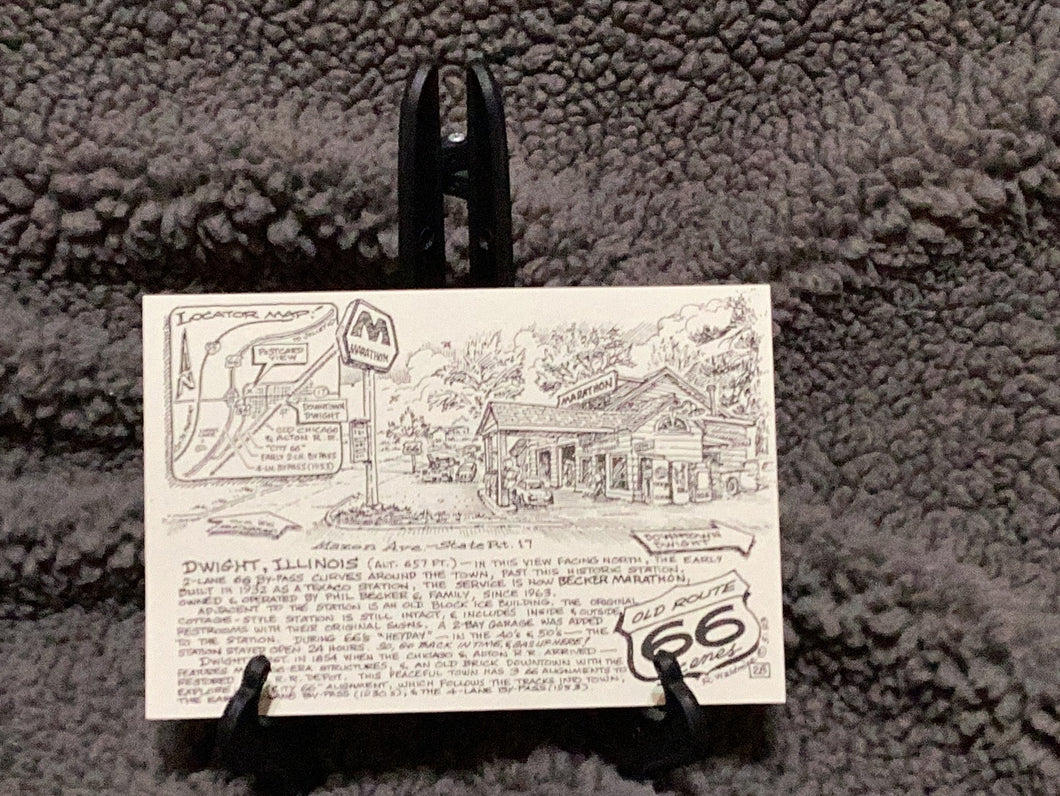 LOCATOR MAP:
POSTCARD
VIEW
DOWNTOWN
DWIGHT
OLD CHICAGO
& ALTON R.R.
"CITY 66"
EARLY 2-LN. BYPASS
4-LN. BYPASS (1953)
M
MARATHON
66
MARATHON
Mazon Ave.-State Rt. 17
DOWNTOWN
DWIGHT
DWIGHT, ILLINOIS (ALT. 657 FT.) — IN THIS VIEW FACING NORTH, THE EARLY
2-LANE 66 BY-PASS CURVES AROUND THE TOWN, PAST THIS HISTORIC STATION.
BUILT IN 1932 AS A TEXACO STATION, THE SERVICE IS NOW BECKER MARATHON,
OWNED & OPERATED BY PHIL BECKER & FAMILY, SINCE 1963.
ADJACENT TO THE STATION IS AN OLD BLOCK ICE BUILDING. THE ORIGINAL
COTTAGE-STYLE STATION IS STILL INTACT, & INCLUDES INSIDE & OUTSIDE
RESTROOMS WITH THEIR ORIGINAL SIGNS. A 2-BAY GARAGE WAS ADDED
TO THE STATION. DURING 66'S "HEYDAY" — IN THE 40'S & 50'S — THE
STATION STAYED OPEN 24 HOURS. SO, GO BACK IN TIME, & GAS UP HERE!
DWIGHT EST. IN 1854 WHEN THE CHICAGO & ALTON R R ARRIVED —
FEATURES ERA STRUCTURES, & AN OLD BRICK DOWNTOWN WITH THE
RESTORED R.R. DEPOT. THIS PEACEFUL TOWN HAS 3 66 ALIGNMENTS TO
EXPLORE CITY 66 ALIGNMENT, WHICH FOLLOWS THE TRACKS INTO TOWN,
THE EARLY LANE BY-PASS (1930'S), & THE 4-LANE BY-PASS (1953)
OLD ROUTE
66
Scenes
28